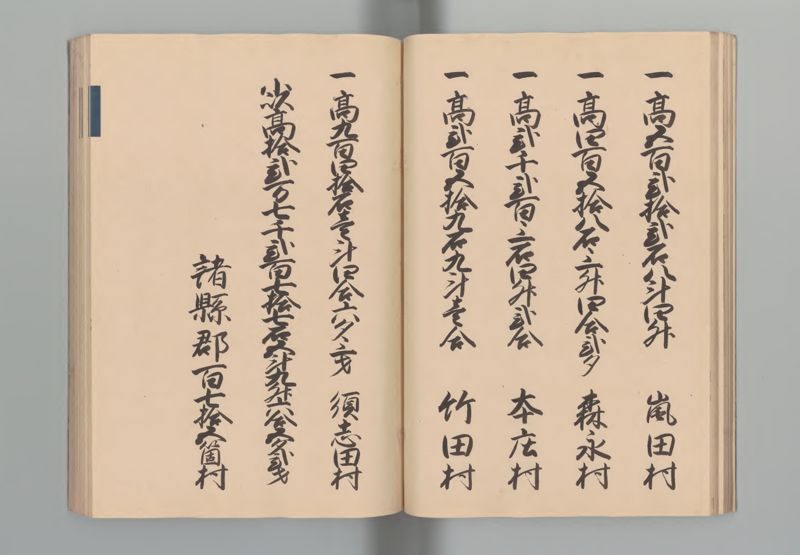 一高五百弐拾弐石八斗四升 嵐田村
一高四百五拾八石三升四合弐夕 森永村
一高弐千弐百三石四升弐合 本庄村
一高弐百五拾九石九斗壱合 竹田村
一高九百四拾石壱斗四合六夕三才 須志田村
惣高拾弐万七千弐百七拾七石五斗九升六合五夕弐才
諸縣郡百七拾五箇村